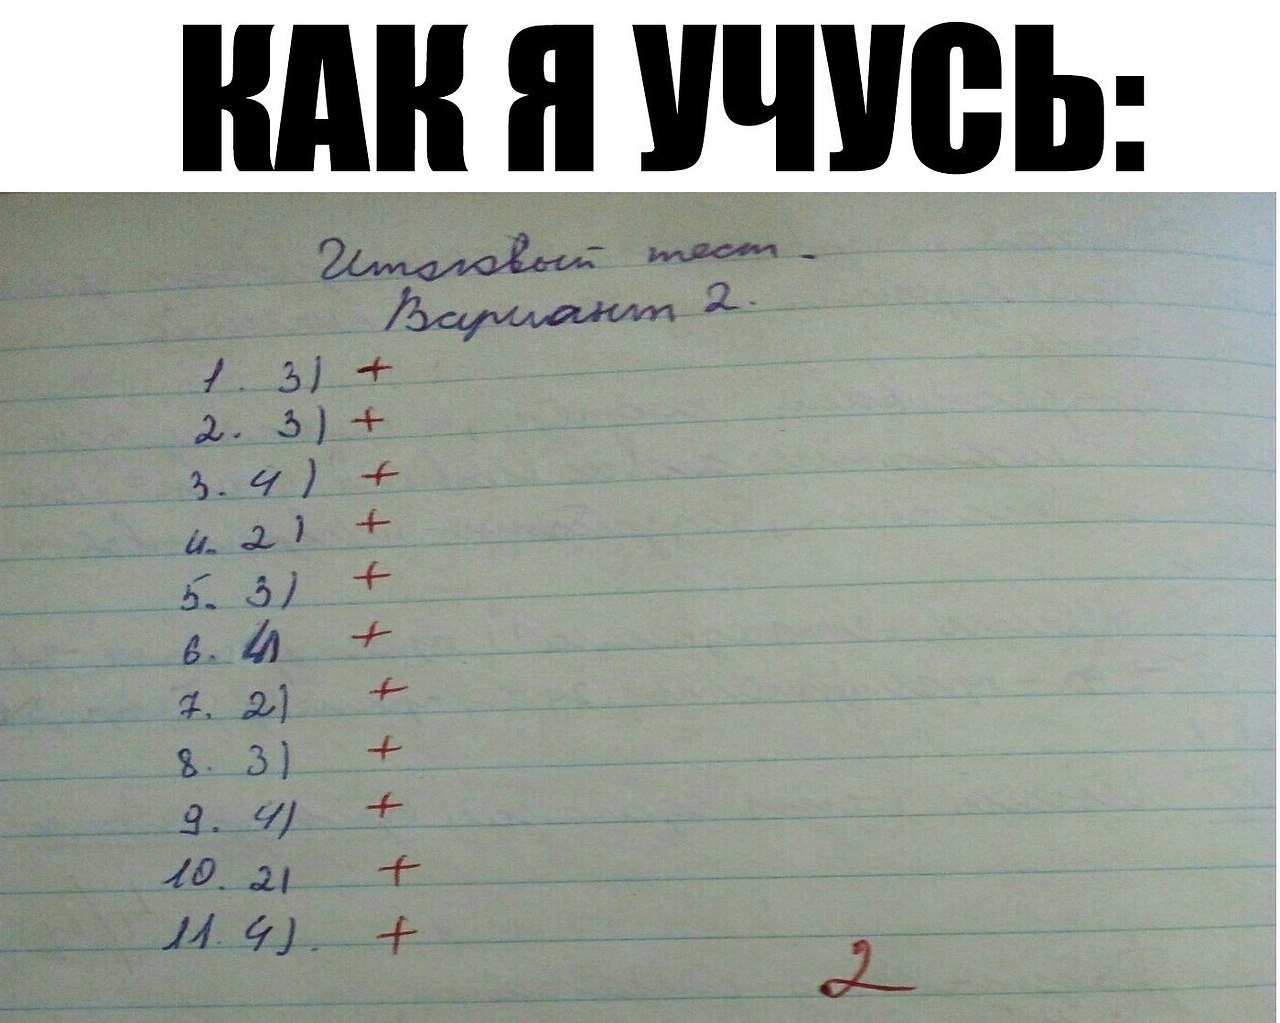 КАК Я УЧУСЬ:
Итоговый тест.
Вариант 2.
1. 3) +
2. 3) +
3. 4) +
4. 2) +
5. 3) +
6. 4) +
7. 2) +
8. 3) +
9. 4) +
10. 2) +
11. 4). +
2